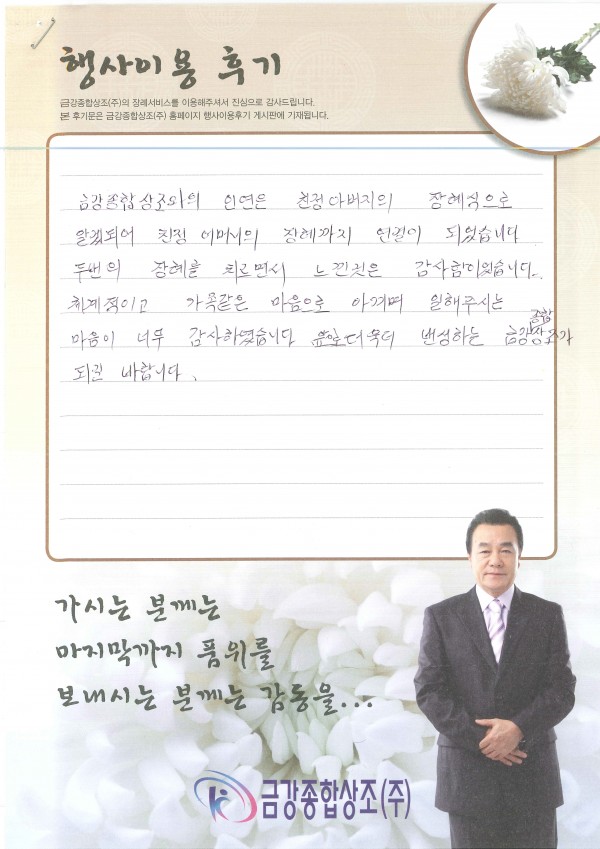 행사이용 후기
금강종합상조(주)의 장례서비스를 이용해주셔서 진심으로 감사드립니다.
본 후기문은 금강종합상조(주) 홈페이지 행사이용후기 게시판에 기재됩니다.
금강종합상조와의 인연은 친정아버지의 장례식으로
알게되어 친정 어머니의 장례까지 연결이 되었습니다
두번의 장례를 치르면서 느낀것은 감사함이었습니다.
체계적이고 가족같은 마음으로 아끼며 일해주시는
마음이 너무 감사하였습니다 앞으로더욱더 번성하는 금강종합상조가
되길 바랍니다.
가시는 분께는
마지막까지 품위를
보내시는 분께는 감동을...
금강종합상조(주)